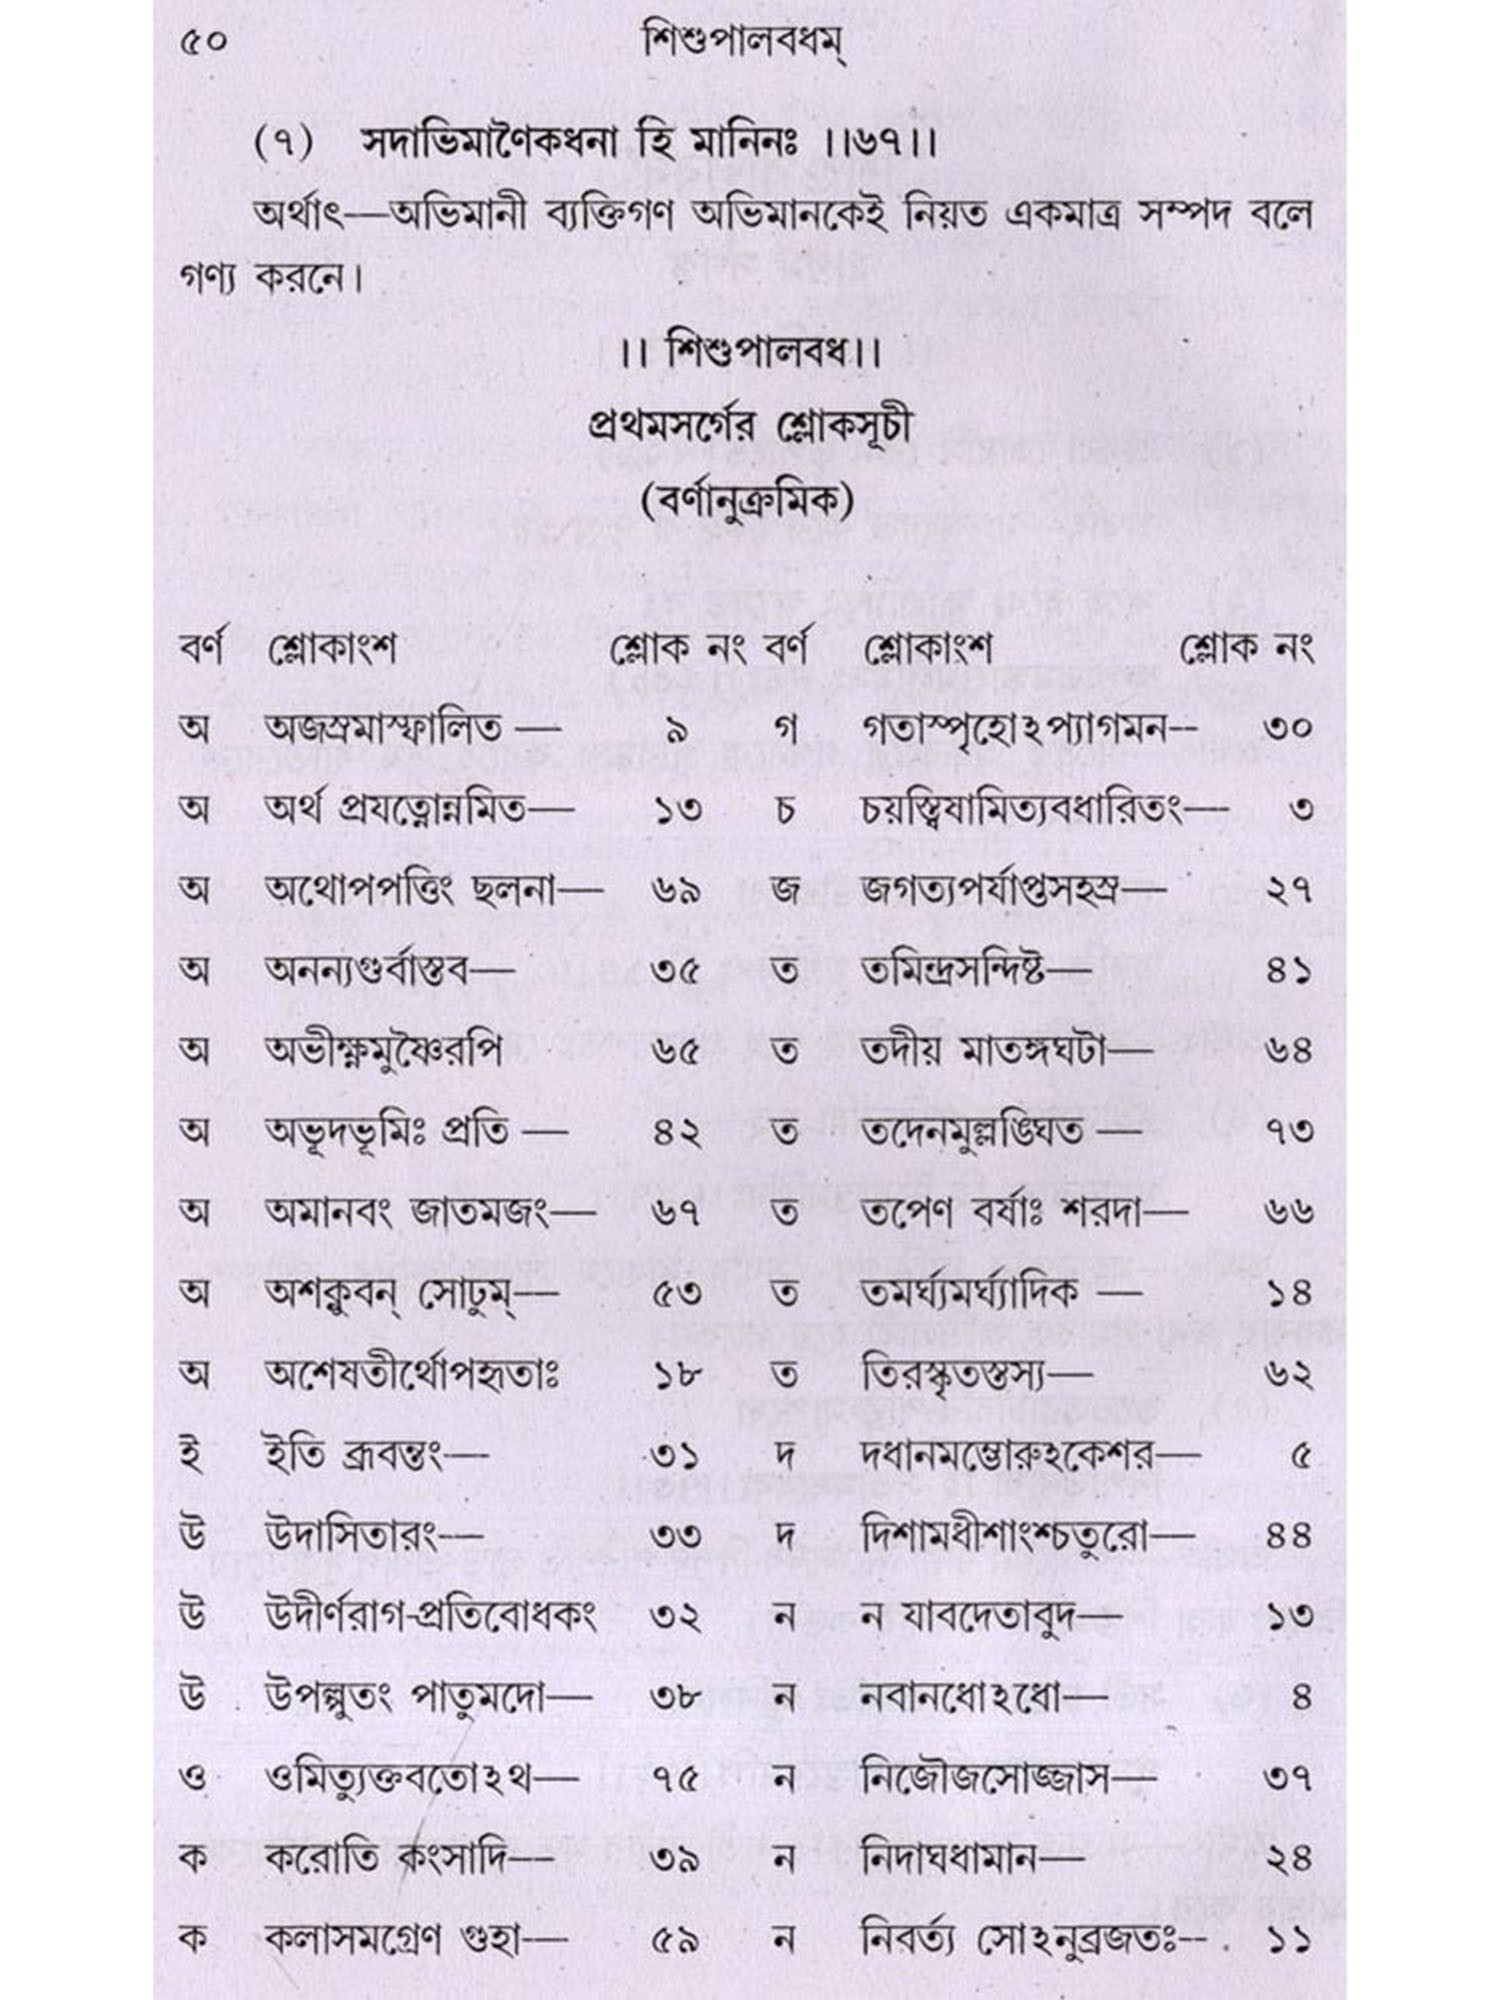 ৫০ শিশুপালবধম্
(৭) সদাভিমাণৈকধনা হি মানিনঃ ।।৬৭।।
অর্থাৎ—অভিমানী ব্যক্তিগণ অভিমানকেই নিয়ত একমাত্র সম্পদ বলে
গণ্য করনে।
।। শিশুপালবধ।।
প্রথমসর্গের শ্লোকসূচী
(বর্ণানুক্রমিক)
বর্ণ শ্লোকাংশ শ্লোক নং বর্ণ শ্লোকাংশ শ্লোক নং
অ অজস্রমাস্ফালিত — ৯ গ গতাস্পৃহোঽপ্যাগমন-- ৩০
অ অর্থ প্রযত্নোন্নমিত— ১৩ চ চয়স্ত্বিষামিত্যবধারিতং— ৩
অ অথোপপত্তিং ছলনা— ৬৯ জ জগত্যপর্যাপ্তসহস্র— ২৭
অ অনন্যগুর্বাস্তব— ৩৫ ত তমিন্দ্রসন্দিষ্ট— ৪১
অ অভীক্ষ্ণমুষ্ণৈরপি ৬৫ ত তদীয় মাতঙ্গঘটা— ৬৪
অ অভূদভূমিঃ প্রতি — ৪২ ত তদেনমুল্লঙ্ঘিত — ৭৩
অ অমানবং জাতমজং— ৬৭ ত তপেণ বর্ষাঃ শরদা— ৬৬
অ অশক্নুবন্ সোঢুম্— ৫৩ ত তমর্ঘ্যমর্ঘ্যাদিক — ১৪
অ অশেষতীর্থোপহৃতাঃ ১৮ ত তিরস্কৃতস্তস্য— ৬২
ই ইতি ব্রূবন্তং— ৩১ দ দধানমম্ভোরুহকেশর— ৫
উ উদাসিতারং— ৩৩ দ দিশামধীশাংশ্চতুরো— ৪৪
উ উদীর্ণরাগ-প্রতিবোধকং ৩২ ন ন যাবদেতাবুদ— ১৩
উ উপল্পুতং পাতুমদো— ৩৮ ন নবানধোঽধো— ৪
ও ওমিত্যুক্তবতোঽথ— ৭৫ ন নিজৌজসোজ্জাস— ৩৭
ক করোতি কংসাদি-– ৩৯ ন নিদাঘধামান— ২৪
ক কলাসমগ্রেণ গুহা— ৫৯ ন নিবর্ত্য সোঽনুব্রজতঃ-- ১১